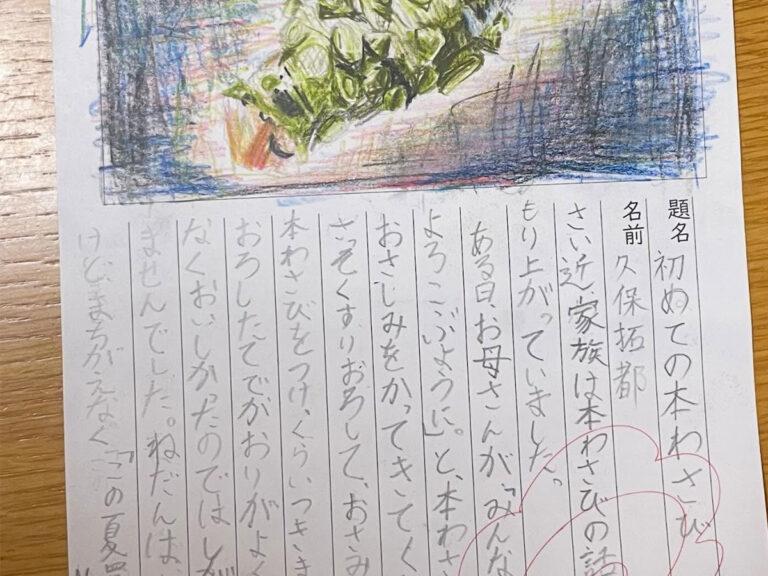 題名 初めての本わさび
名前 久保拓都
さい近、家族は本わさびの話
もり上がっていました。
ある日、お母さんが、「みんな
よろこぶように。」と、本わさ
おさしみをかってきてく
さっそくすりおろして、おさみ
本わさびをつけ、くらいつきま
おろしたてでがおりがよく
なくおいしかったのではしが
ませんでした。ねだんは、
けど、まちがえなく「この夏